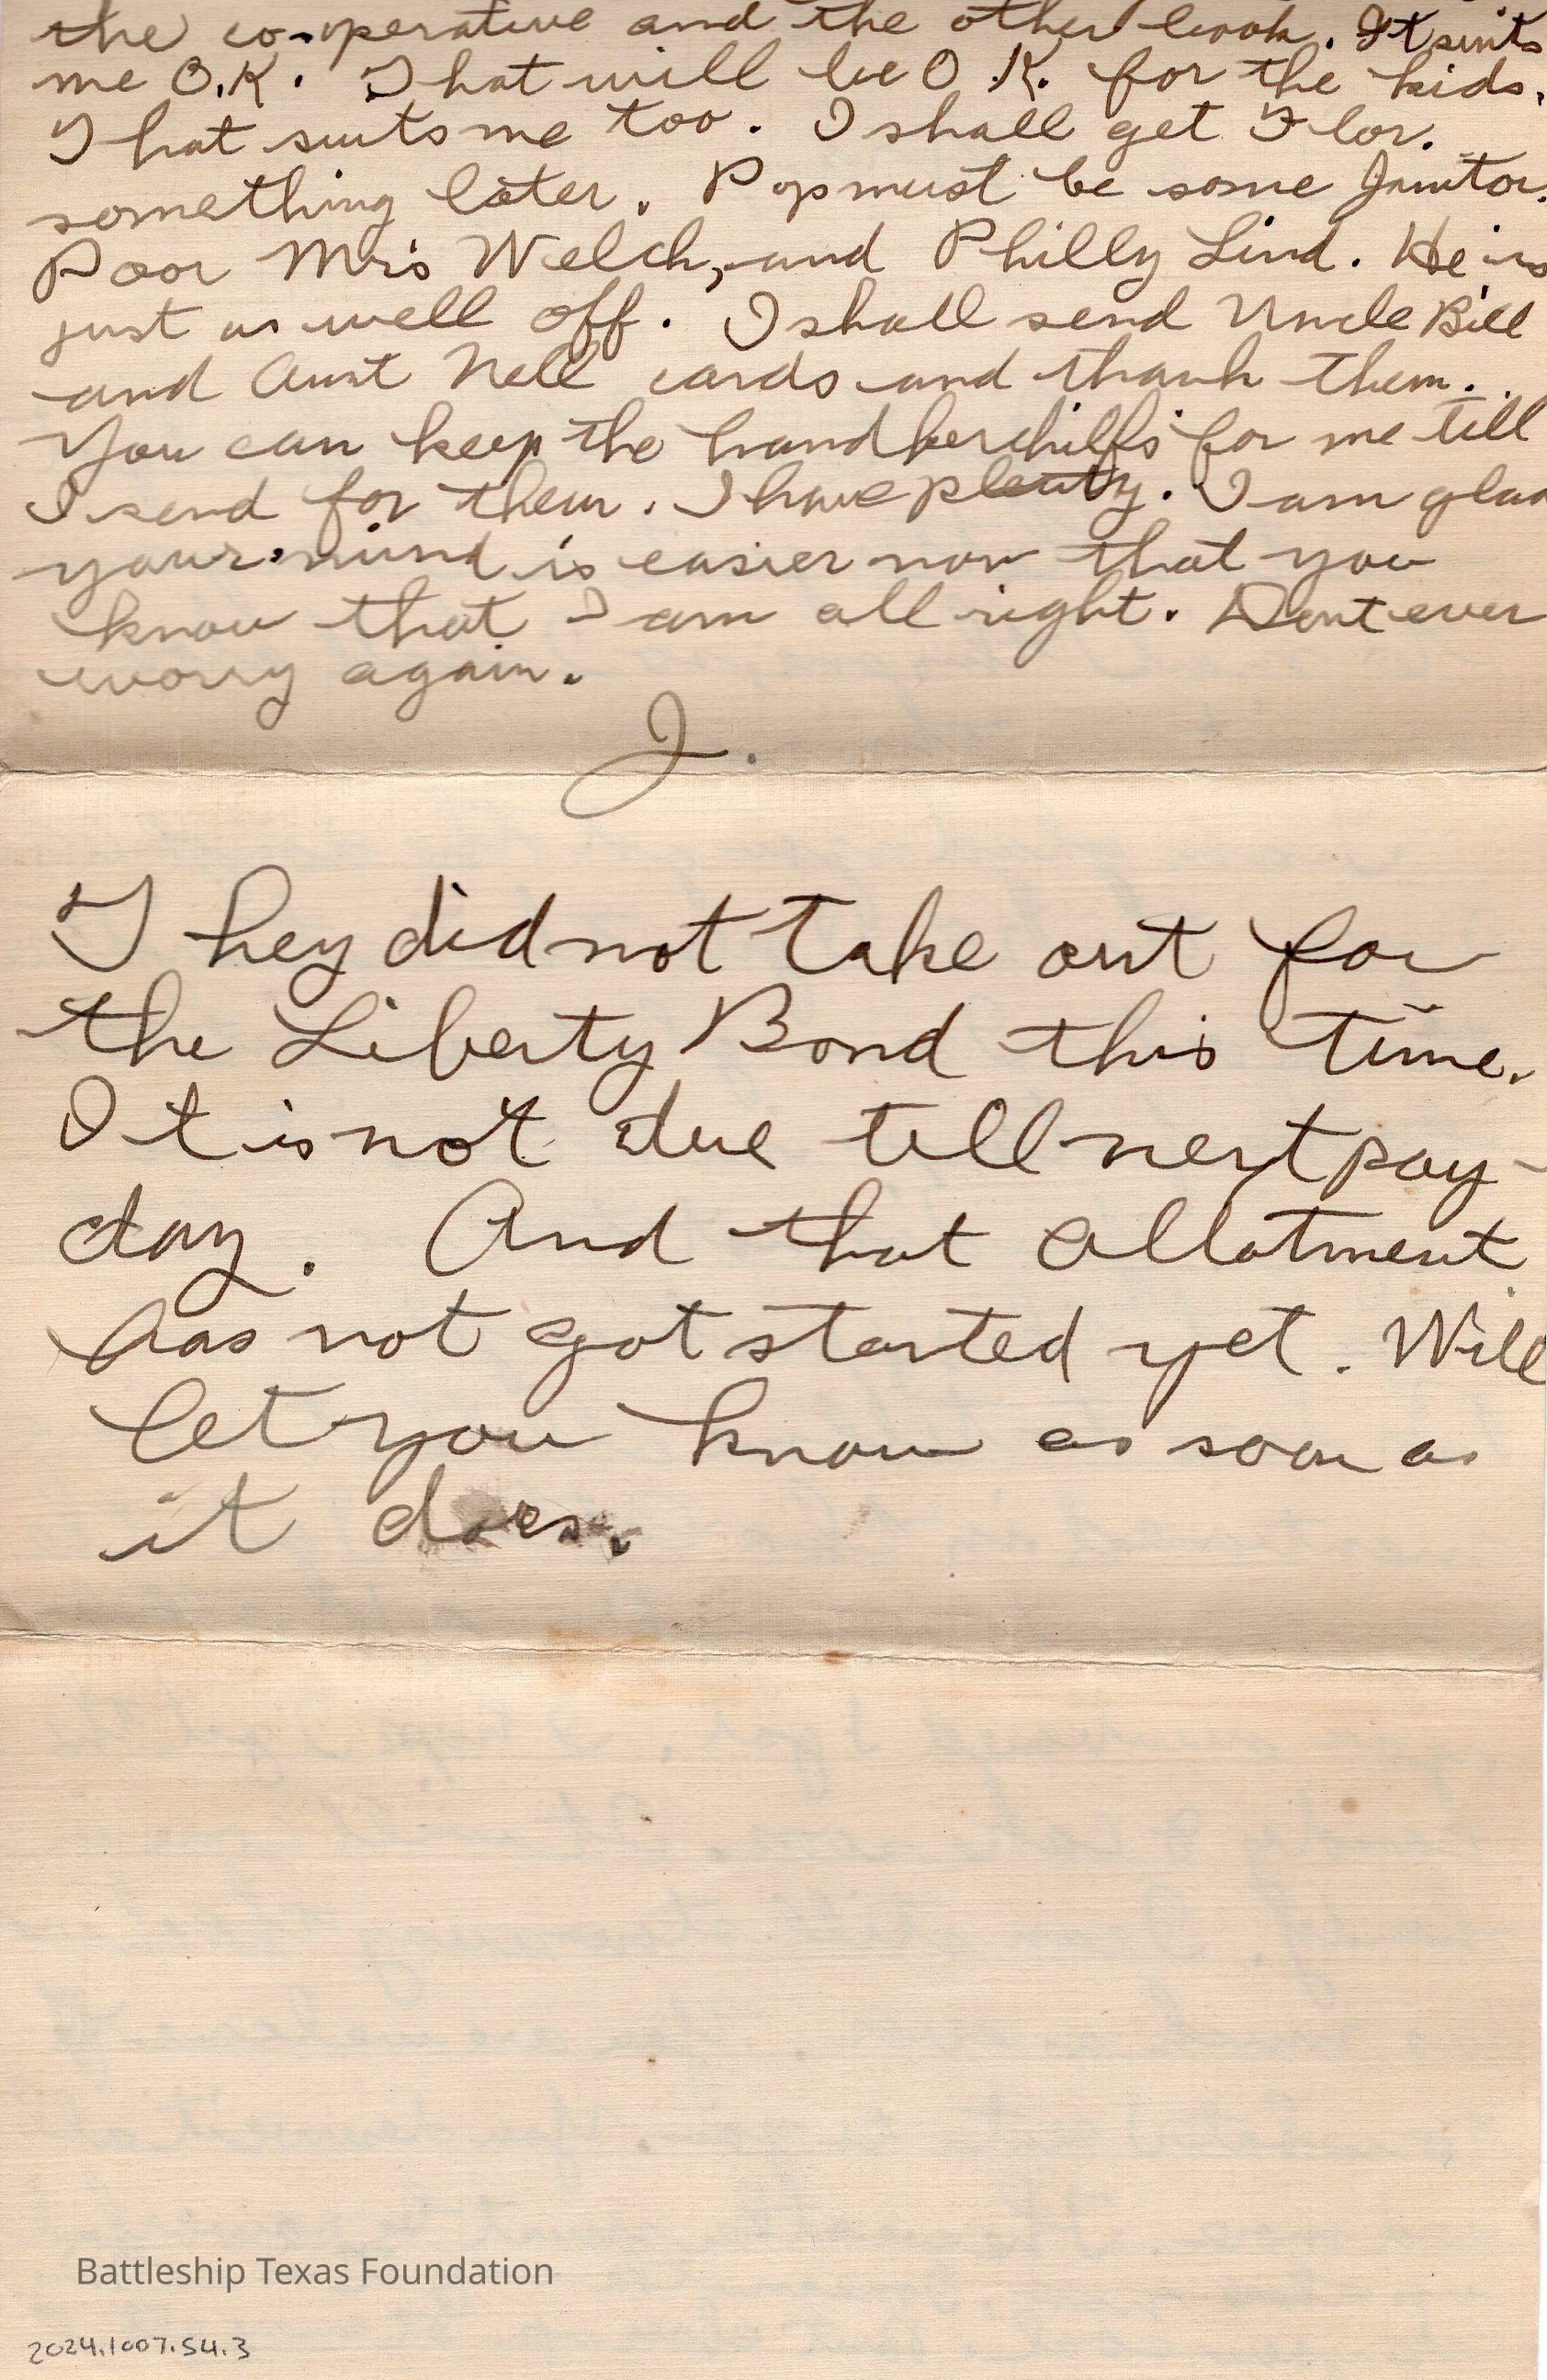 the co-operative and the other book. It suits
me O.K. That will be O.K. for the kids.
That suits me too. I shall get Flor.
something later. Pop must be some Janitor.
Poor Mrs Welch, and Philly Lind. He is
just as well off. I shall send Uncle Bill
and Aunt Nell cards and thank them.
You can keep the handkerchiffs for me till
I send for them. I have plenty. I am glad
your mind is easier now that you
know that I am all right. Dont ever
worry again.
J.
They did not take out for
the Liberty Bond this time.
It is not due till next pay-
day. And that allotment
has not got started yet. Will
let you know as soon as
it does.
Battleship Texas Foundation
2024.1007.54.3